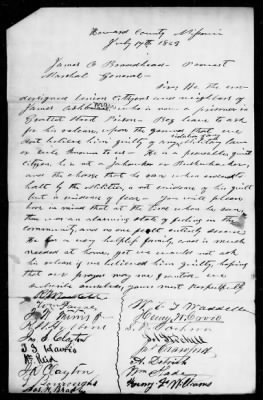 Howard County Missouri
July 19th 1863
James O Broadhead - Provost
Marshal General -
Sir, We the un
dersigned Union Citizens and neighbors of
James who is now a prisoner in
Gratiot Street Prison - Beg leave to ask
for his release, upon the ground that we
dont believe him guilty of violating any military law
or Civil known to us - He is a peaceable, quiet
citizen, is not a Jayhawker or Bushwhacker,
and the charge that he ran when ordered to
halt by the Militia, is not evidence of his guilt
but is evidence of fear - You will please
bear in mind that at the time when he ran,
there was an alarming state of feeling in the
community, and no one felt entirely secure
He has a very helpless family, and is much
needed at home, yet we would not ask
his release if we believed him guilty, hoping
that our prayer may be granted we
subscribe ourselves, yours most respectfully
Jas E Clayton
J S Hawis
J Clayton
Burroughs
Waddell
Henry
Crawford
Wm Slade
Henry Williams